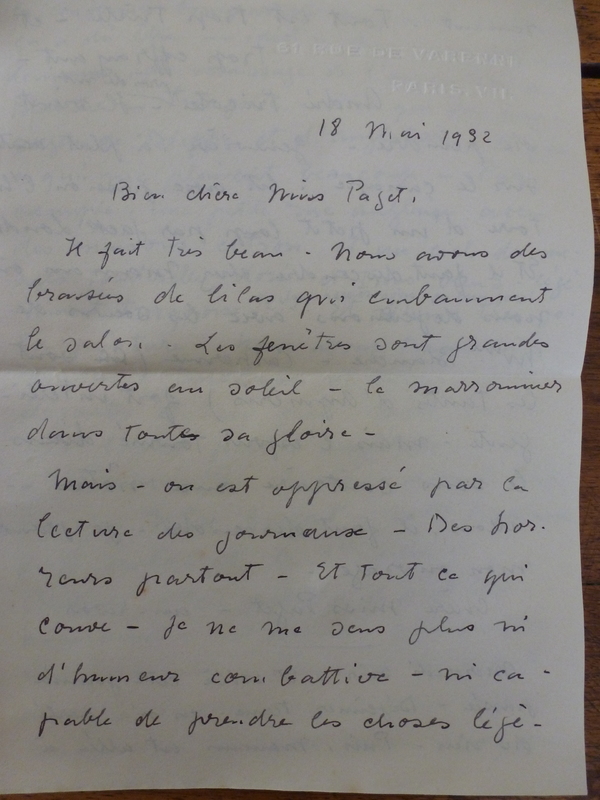 RUE DE VARENNE
PARIS. VII
18 Mai 1932
Bien chère Miss Paget,
Il fait très beau - Nous avons des
brassées de lilas qui embaument
le salon. Les fenêtres sont grandes
ouvertes au soleil - le marronnier
dans toute sa gloire -
Mais - on est oppressé par la
lecture des journaux - Des hor-
reurs partout - Et tout ce qui
couve - Je ne me sens plus ni
d'humeur combattive - ni ca-
pable de prendre les choses légè-